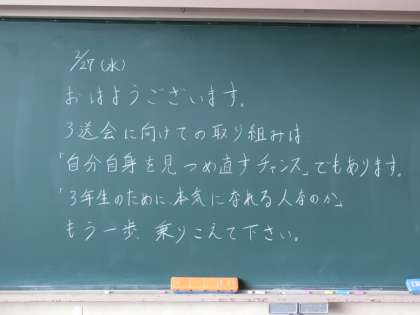 2/27(水)
おはようございます。
3送会に向けての取り組みは
「自分自身を見つめ直すチャンス」でもあります。
「3年生のために、本気になれる人なのか」
もう一歩、乗りこえて下さい。